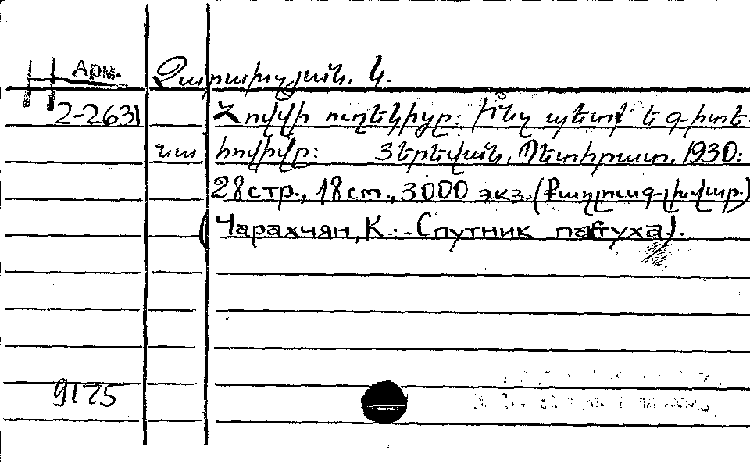 Арм. Չարախչյան, Կ.
2-2631 Հովվի ուղեկիցը: Ի՞նչ պետք ե գիտե-
նա հովիվը: Յերեվան, Պետհրատ, 1930:
28 стр., 18 см., 3000 экз. (Քաղլուսգլխվար.)
(Чарахчян, К. Спутник пастуха).
9175